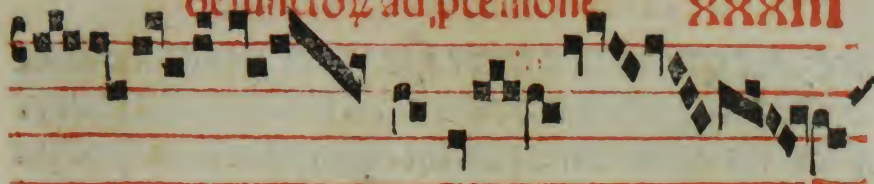 defunctoꝝ ad ꝓcessionē XXXIII